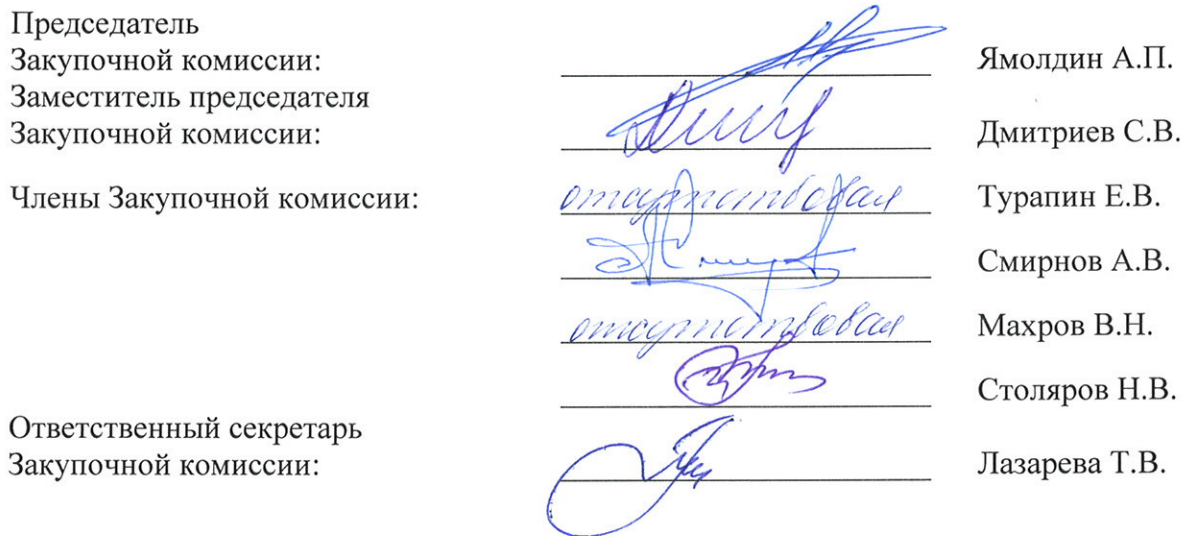 Председатель
Закупочной комиссии: Ямолдин А.П.
Заместитель председателя
Закупочной комиссии: Дмитриев С.В.
Члены Закупочной комиссии: отсутствовал Турапин Е.В.
Смирнов А.В.
отсутствовал Махров В.Н.
Столяров Н.В.
Ответственный секретарь
Закупочной комиссии: Лазарева Т.В.